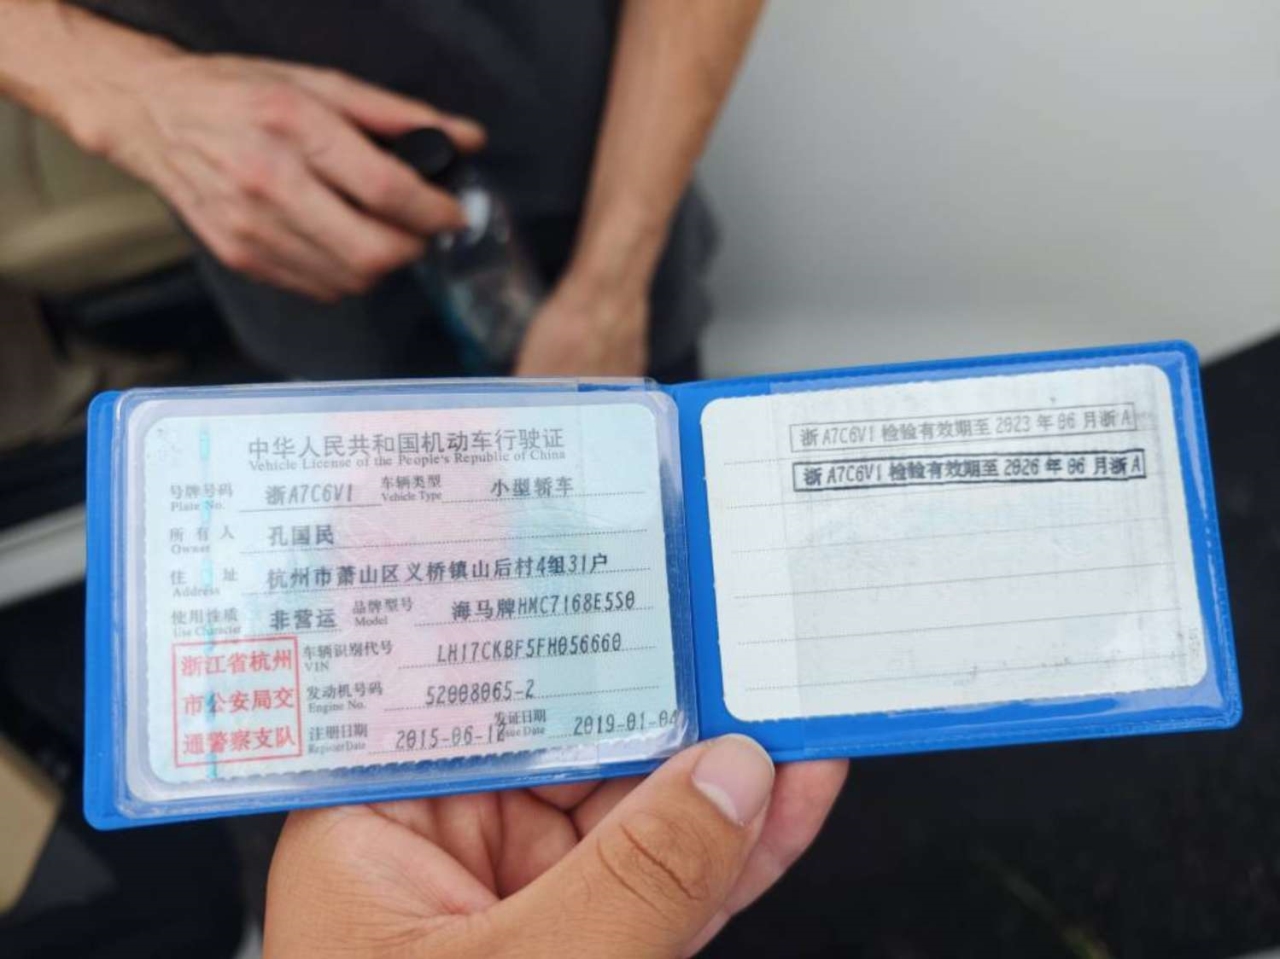 中华人民共和国机动车行驶证
Vehicle License of the People's Republic of China
号牌号码 浙A7C6V1 车辆类型 小型轿车
Plate No. Vehicle Type
所有人 孔国民
Owner
住址 杭州市萧山区义桥镇山后村4组31户
Address
使用性质 非营运 品牌型号 海马牌HMC7168E5S0
Use Character Model
浙江省杭州
市公安局交
通警察支队
车辆识别代号 LH17CKBF5FH056660
VIN
发动机号码 52008065-2
Engine No.
注册日期 2015-06- 发证日期 2019-01-04
Register Date Issue Date
浙A7C6V1检验有效期至2023年06月浙A
浙A7C6V1检验有效期至2026年06月浙A